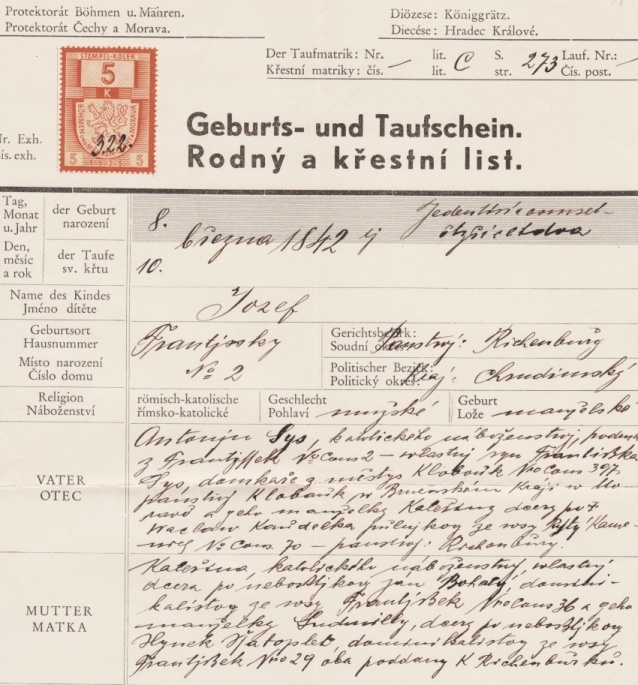 Protektorát Böhmen u. Mähren.
Protektorát Čechy a Morava.
Diözese: Königgrätz.
Diecése: Hradec Králové.
Der Taufmatrik: Nr. — lit. C S. 273 Lauf. Nr.: —
Křestní matriky: čís. lit. str. Čís. post.
STEMPEL-KOLEK
5
K
BÖHMEN MORAVA
5 5
322.
Nr. Exh.
čís. exh.
Geburts- und Taufschein.
Rodný a křestní list.
Tag, Monat u. Jahr
Den, měsíc a rok
der Geburt
narození
der Taufe
sv. křtu
8.
března 1842 q
10.
Name des Kindes
Jméno dítěte
Jozef
Geburtsort
Hausnummer
Místo narození
Číslo domu
Frantjssky
No 2
Gerichtsbezirk:
Soudní okres:
Panstvj: Richenburg
Politischer Bezirk:
Politický okres:
Kraj: Chrudimský
Religion
Náboženství
römisch-katolische
římsko-katolické
Geschlecht
Pohlaví mužské
Geburt
Lože manželské
VATER
OTEC
Antonjn Sys, katolického náboženstvj,
z Frantjssek No Cons 2 – wlastnj syn Frantisska
Sys, domkaře z městys Klobouk No Cons 397
panstvj Klobouk w Brněnském Kraji w Mo-
rawě a geho manželky Kateřiny dcery po †
Waclaw Koudelka ze wsy
No Cons. 70 – panstvj: Richenburg.
MUTTER
MATKA
Kateřina, katolického náboženstvj, wlastnj
dcera po nebosstjkovj Jan Bohatý, domini-
kalistovj ze wsy Frantjssek No Cons 36 a geho
manželky Ludmilly, dcery po nebosstjkovj
Hynek Šťatoplet, dominikalistovj ze wsy
Frantjssek No 29 oba poddany K Richenburku.